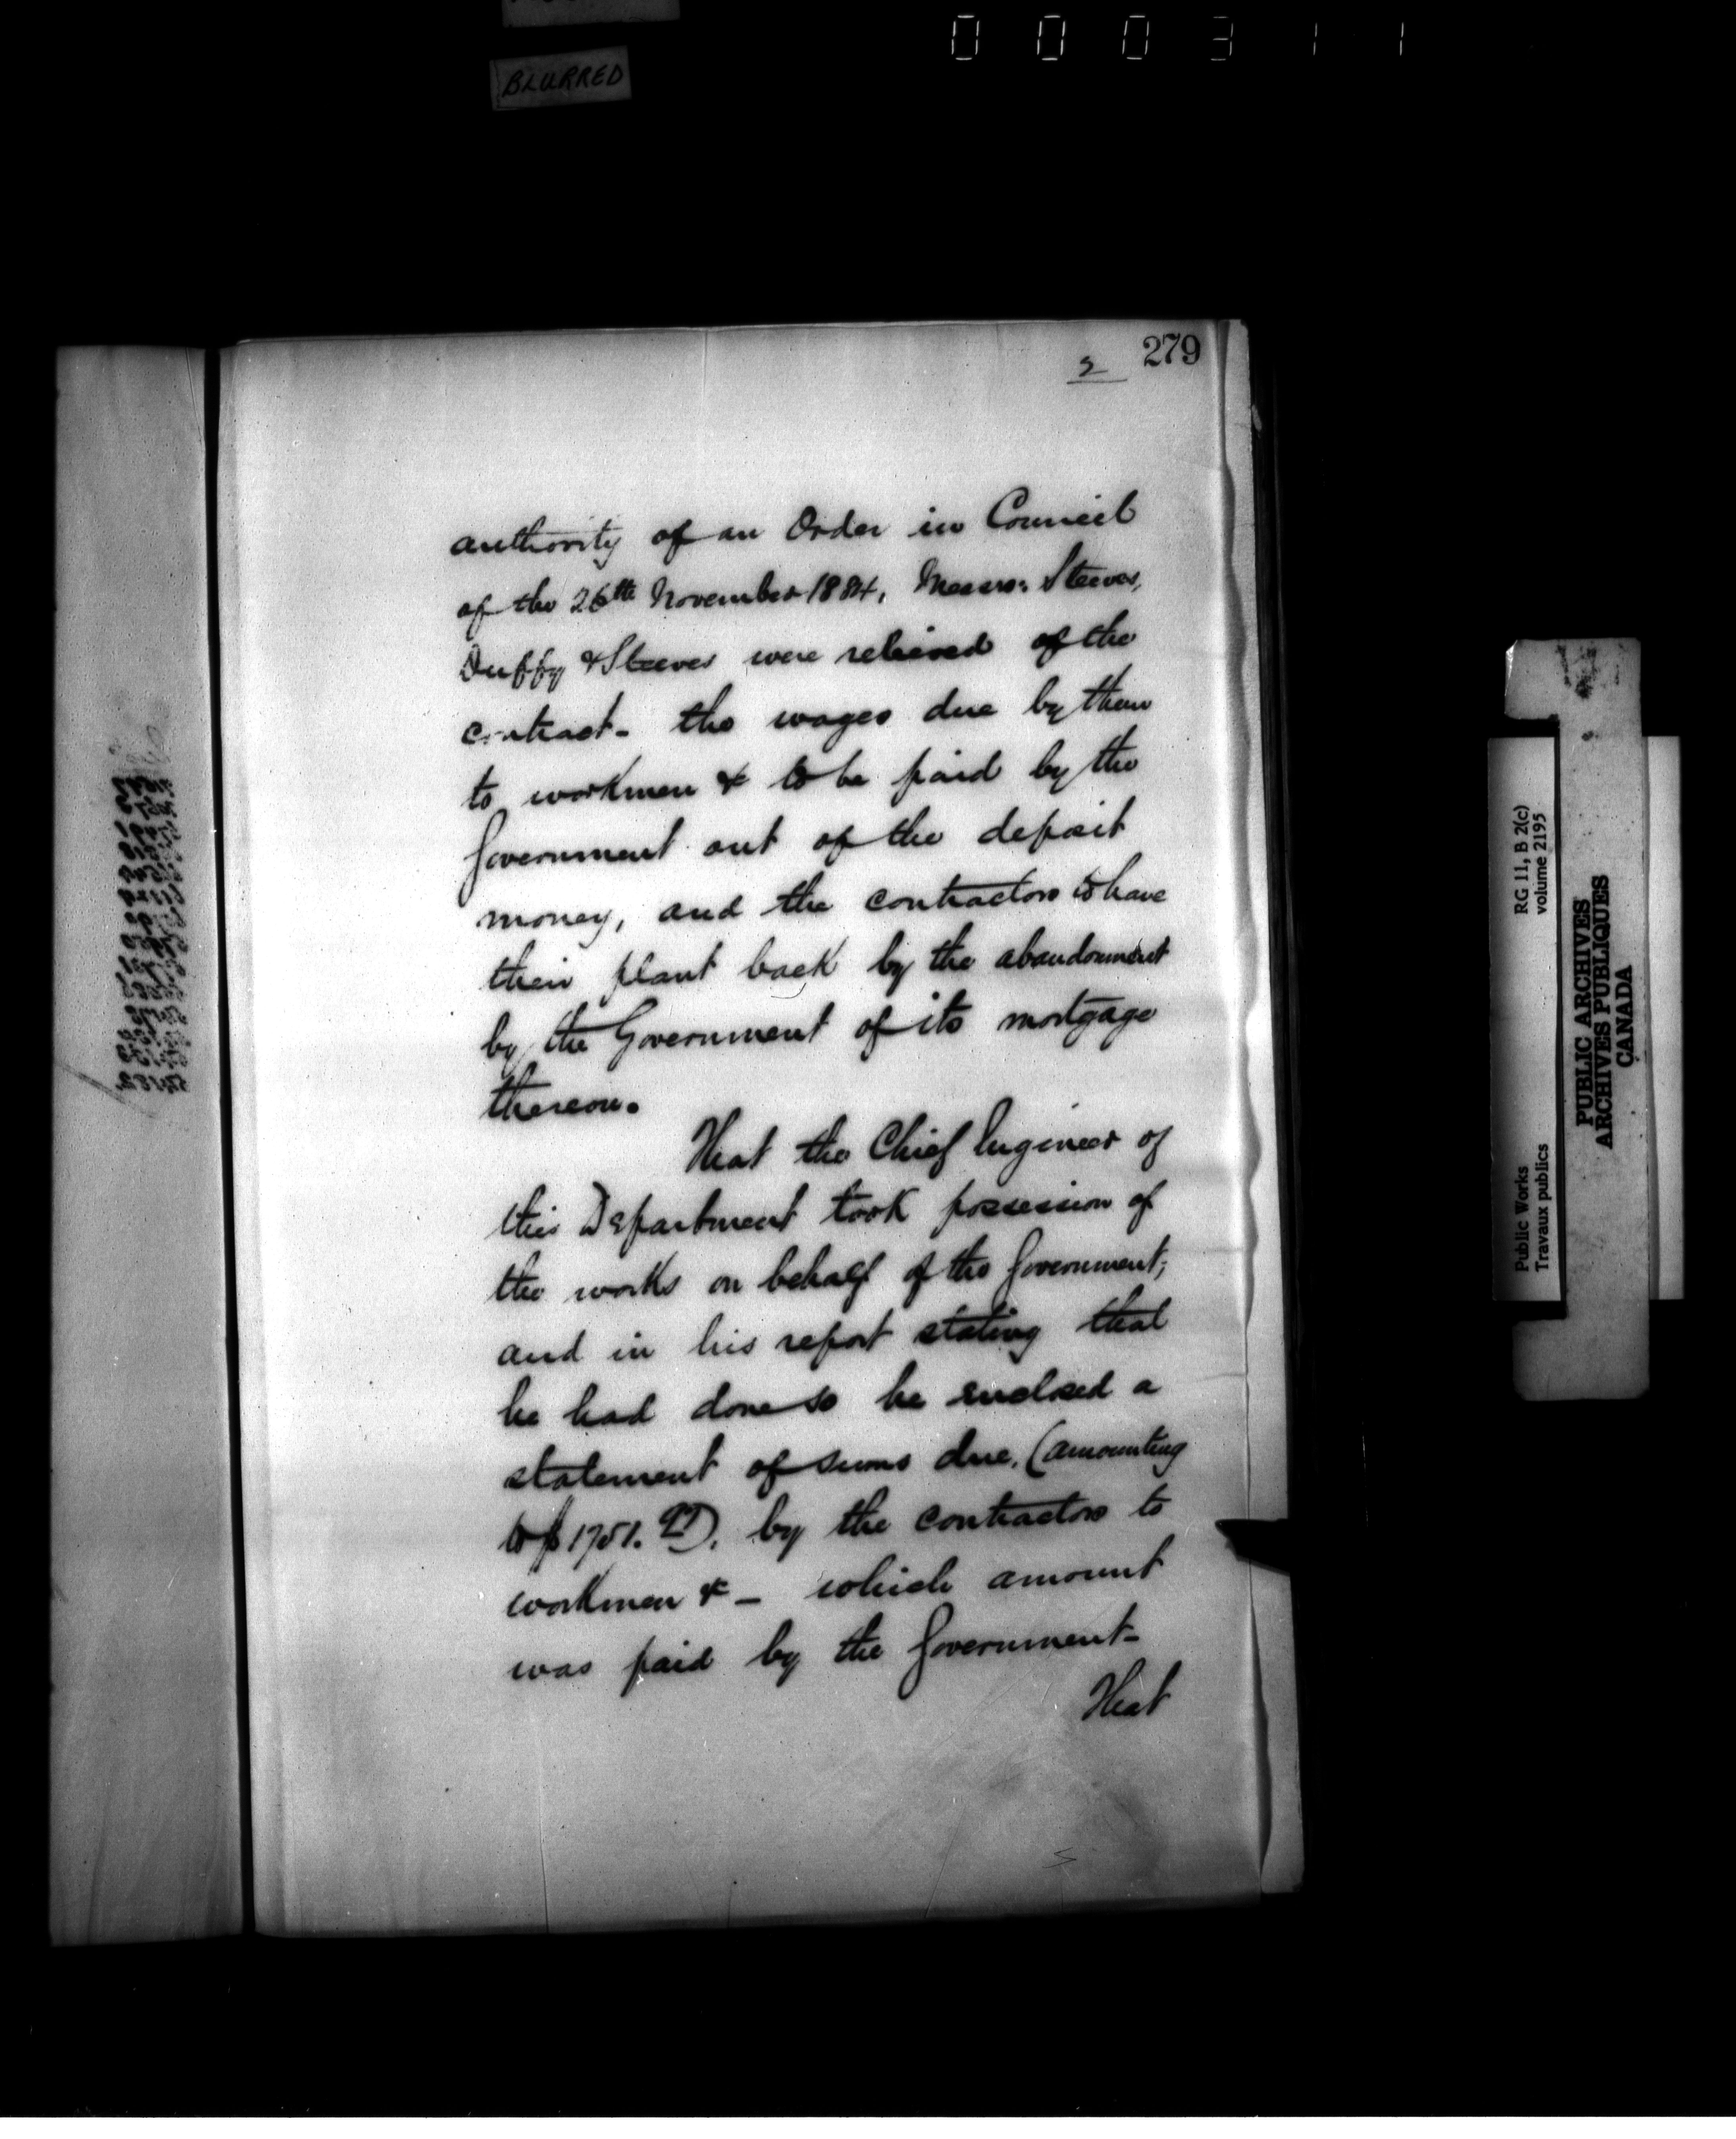 BLURRED
0 0 0 3 1 1
2 279
authority of an Order in Council
of the 26th November 1884, Messrs. Steeves,
Duffy & Steeves were relieved of the
contract - the wages due by them
to workmen & to be paid by the
Government out of the deposit
money, and the contractors to have
their plant back by the abandonment
by the Government of its mortgage
thereon.
That the Chief Engineer of
this Department took possession of
the works on behalf of the Government;
and in his report stating that
he had done so he enclosed a
statement of sums due, (amounting
to $1751.97), by the contractors to
workmen & - which amount
was paid by the Government -
That
Public Works RG 11, B 2(c)
Travaux publics volume 2195
PUBLIC ARCHIVES
ARCHIVES PUBLIQUES
CANADA